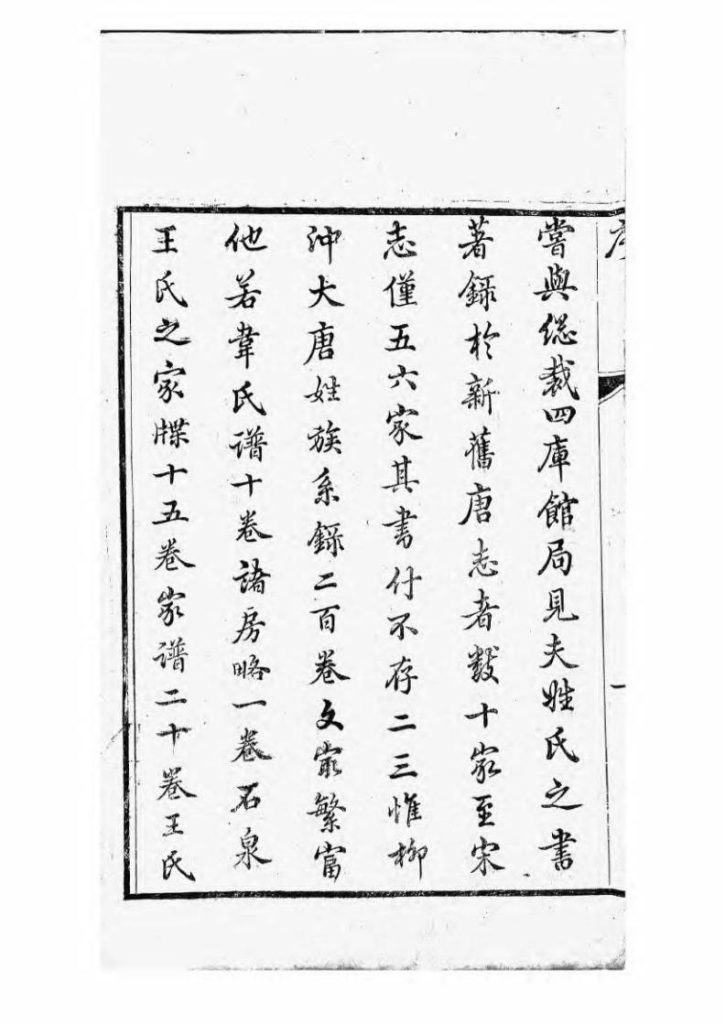 嘗與总裁四庫館局見夫姓氏之書
著錄於新舊唐志者數十家至宋
志僅五六家其書什不存二三惟柳
沖大唐姓族系錄二百卷文㝡繁富
他若韋氏譜十卷諸房略一卷石泉
王氏之家牒十五卷家譜二十卷王氏